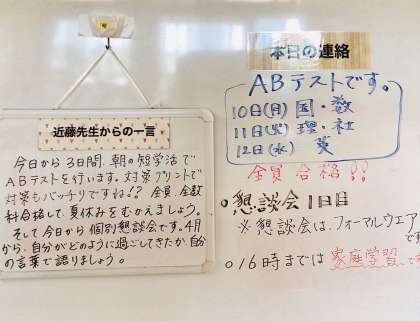 近藤先生からの一言
今日から3日間、朝の短学活で
ABテストを行います。対策プリントで
対策もバッチリですね!? 全員、全教
科合格して、夏休みをむかえましょう。
そして今日から個別懇談会です。4月
から、自分がどのように過ごしてきたか、自分
の言葉で語りましょう。
本日の連絡
ABテストです。
10日(月) 国・数
11日(火) 理・社
12日(水) 英
全員合格!!
○懇談会1日目
※懇談会は、フォーマルウエア
です
○16時までは家庭学習です